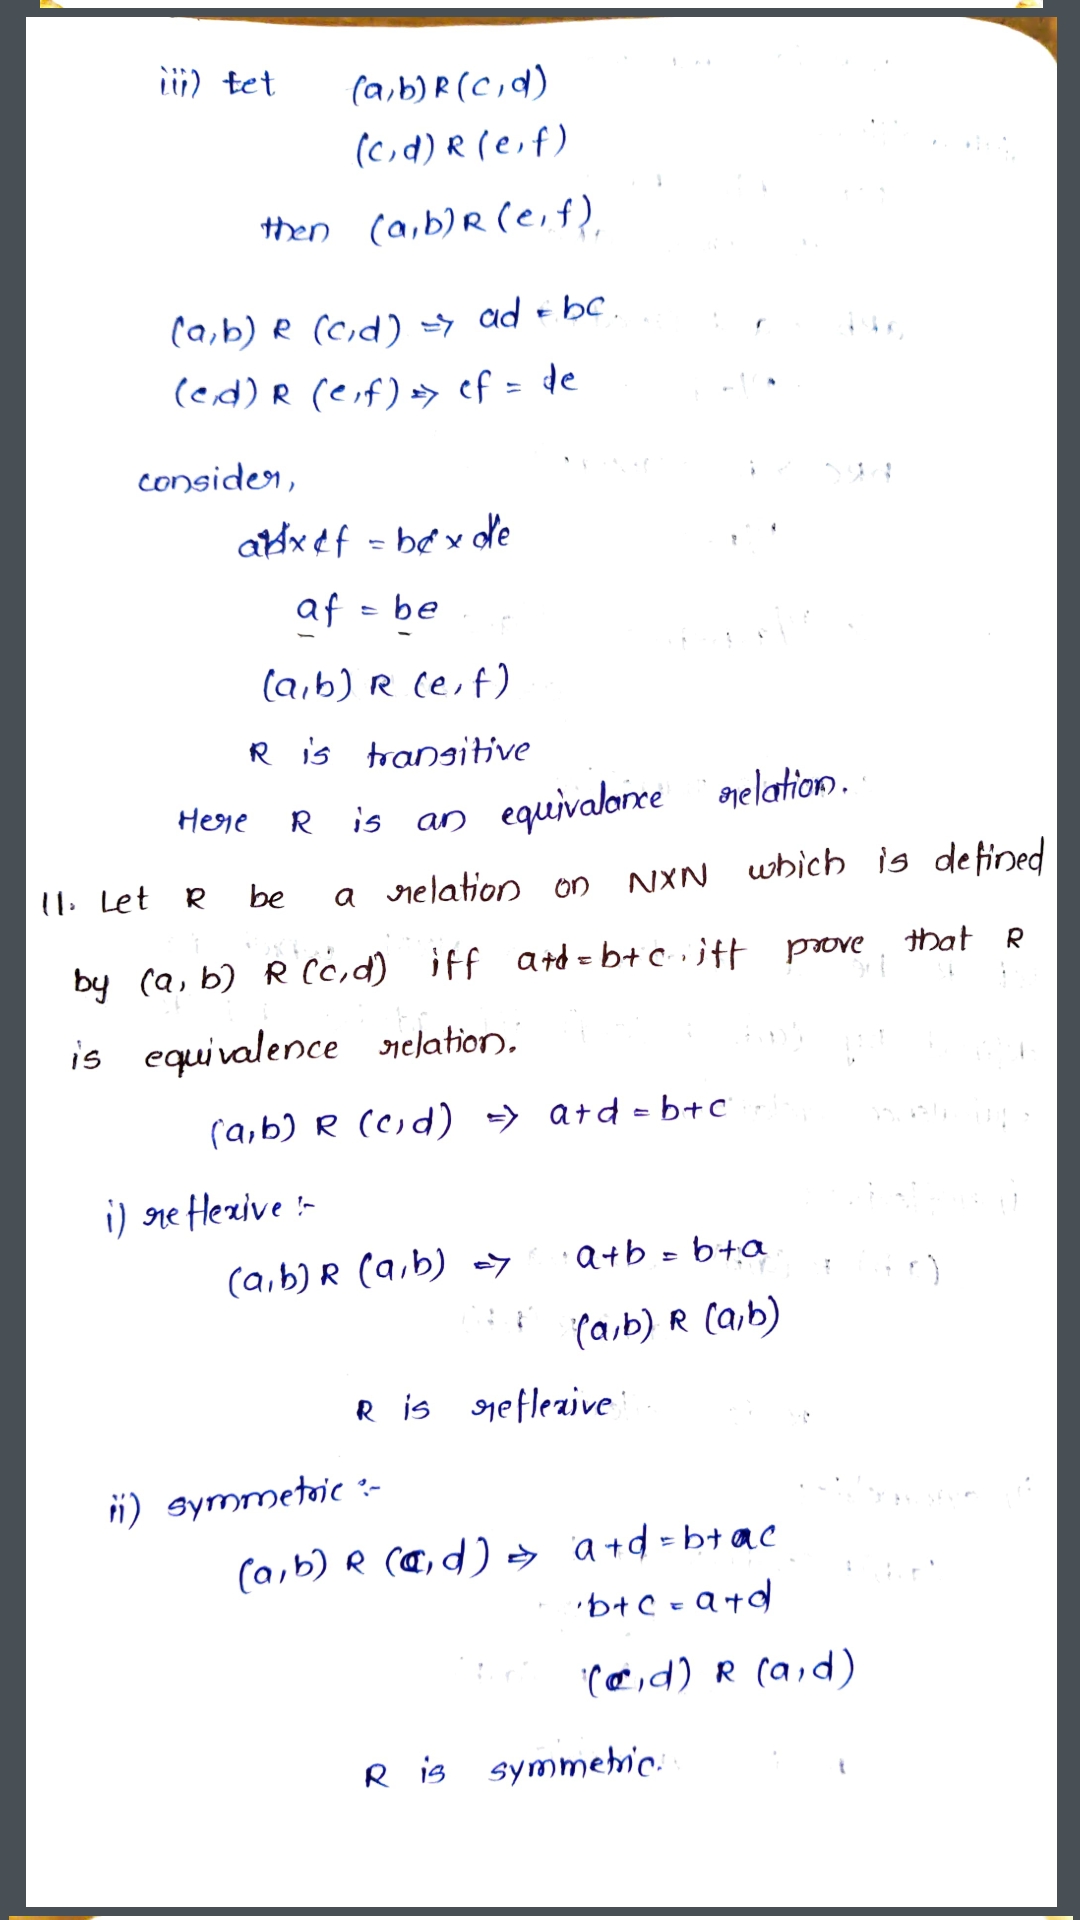 iii) tet (a,b) R (c,d)
(c,d) R (e,f)
then (a,b) R (e,f).
(a,b) R (c,d) ⇒ ad = bc.
(c,d) R (e,f) ⇒ cf = de
consider,
ad×cf = bc×de
af = be
(a,b) R (e,f)
R is transitive
Here R is an equivalance relation.
11. Let R be a relation on N×N which is defined
by (a,b) R (c,d) iff a+d = b+c. iff prove that R
is equivalence relation.
(a,b) R (c,d) ⇒ a+d = b+c
i) reflexive :-
(a,b) R (a,b) ⇒ a+b = b+a
(a,b) R (a,b)
R is reflexive
ii) symmetric :-
(a,b) R (c,d) ⇒ a+d = b+ac
b+c = a+d
(c,d) R (a,d)
R is symmetric.